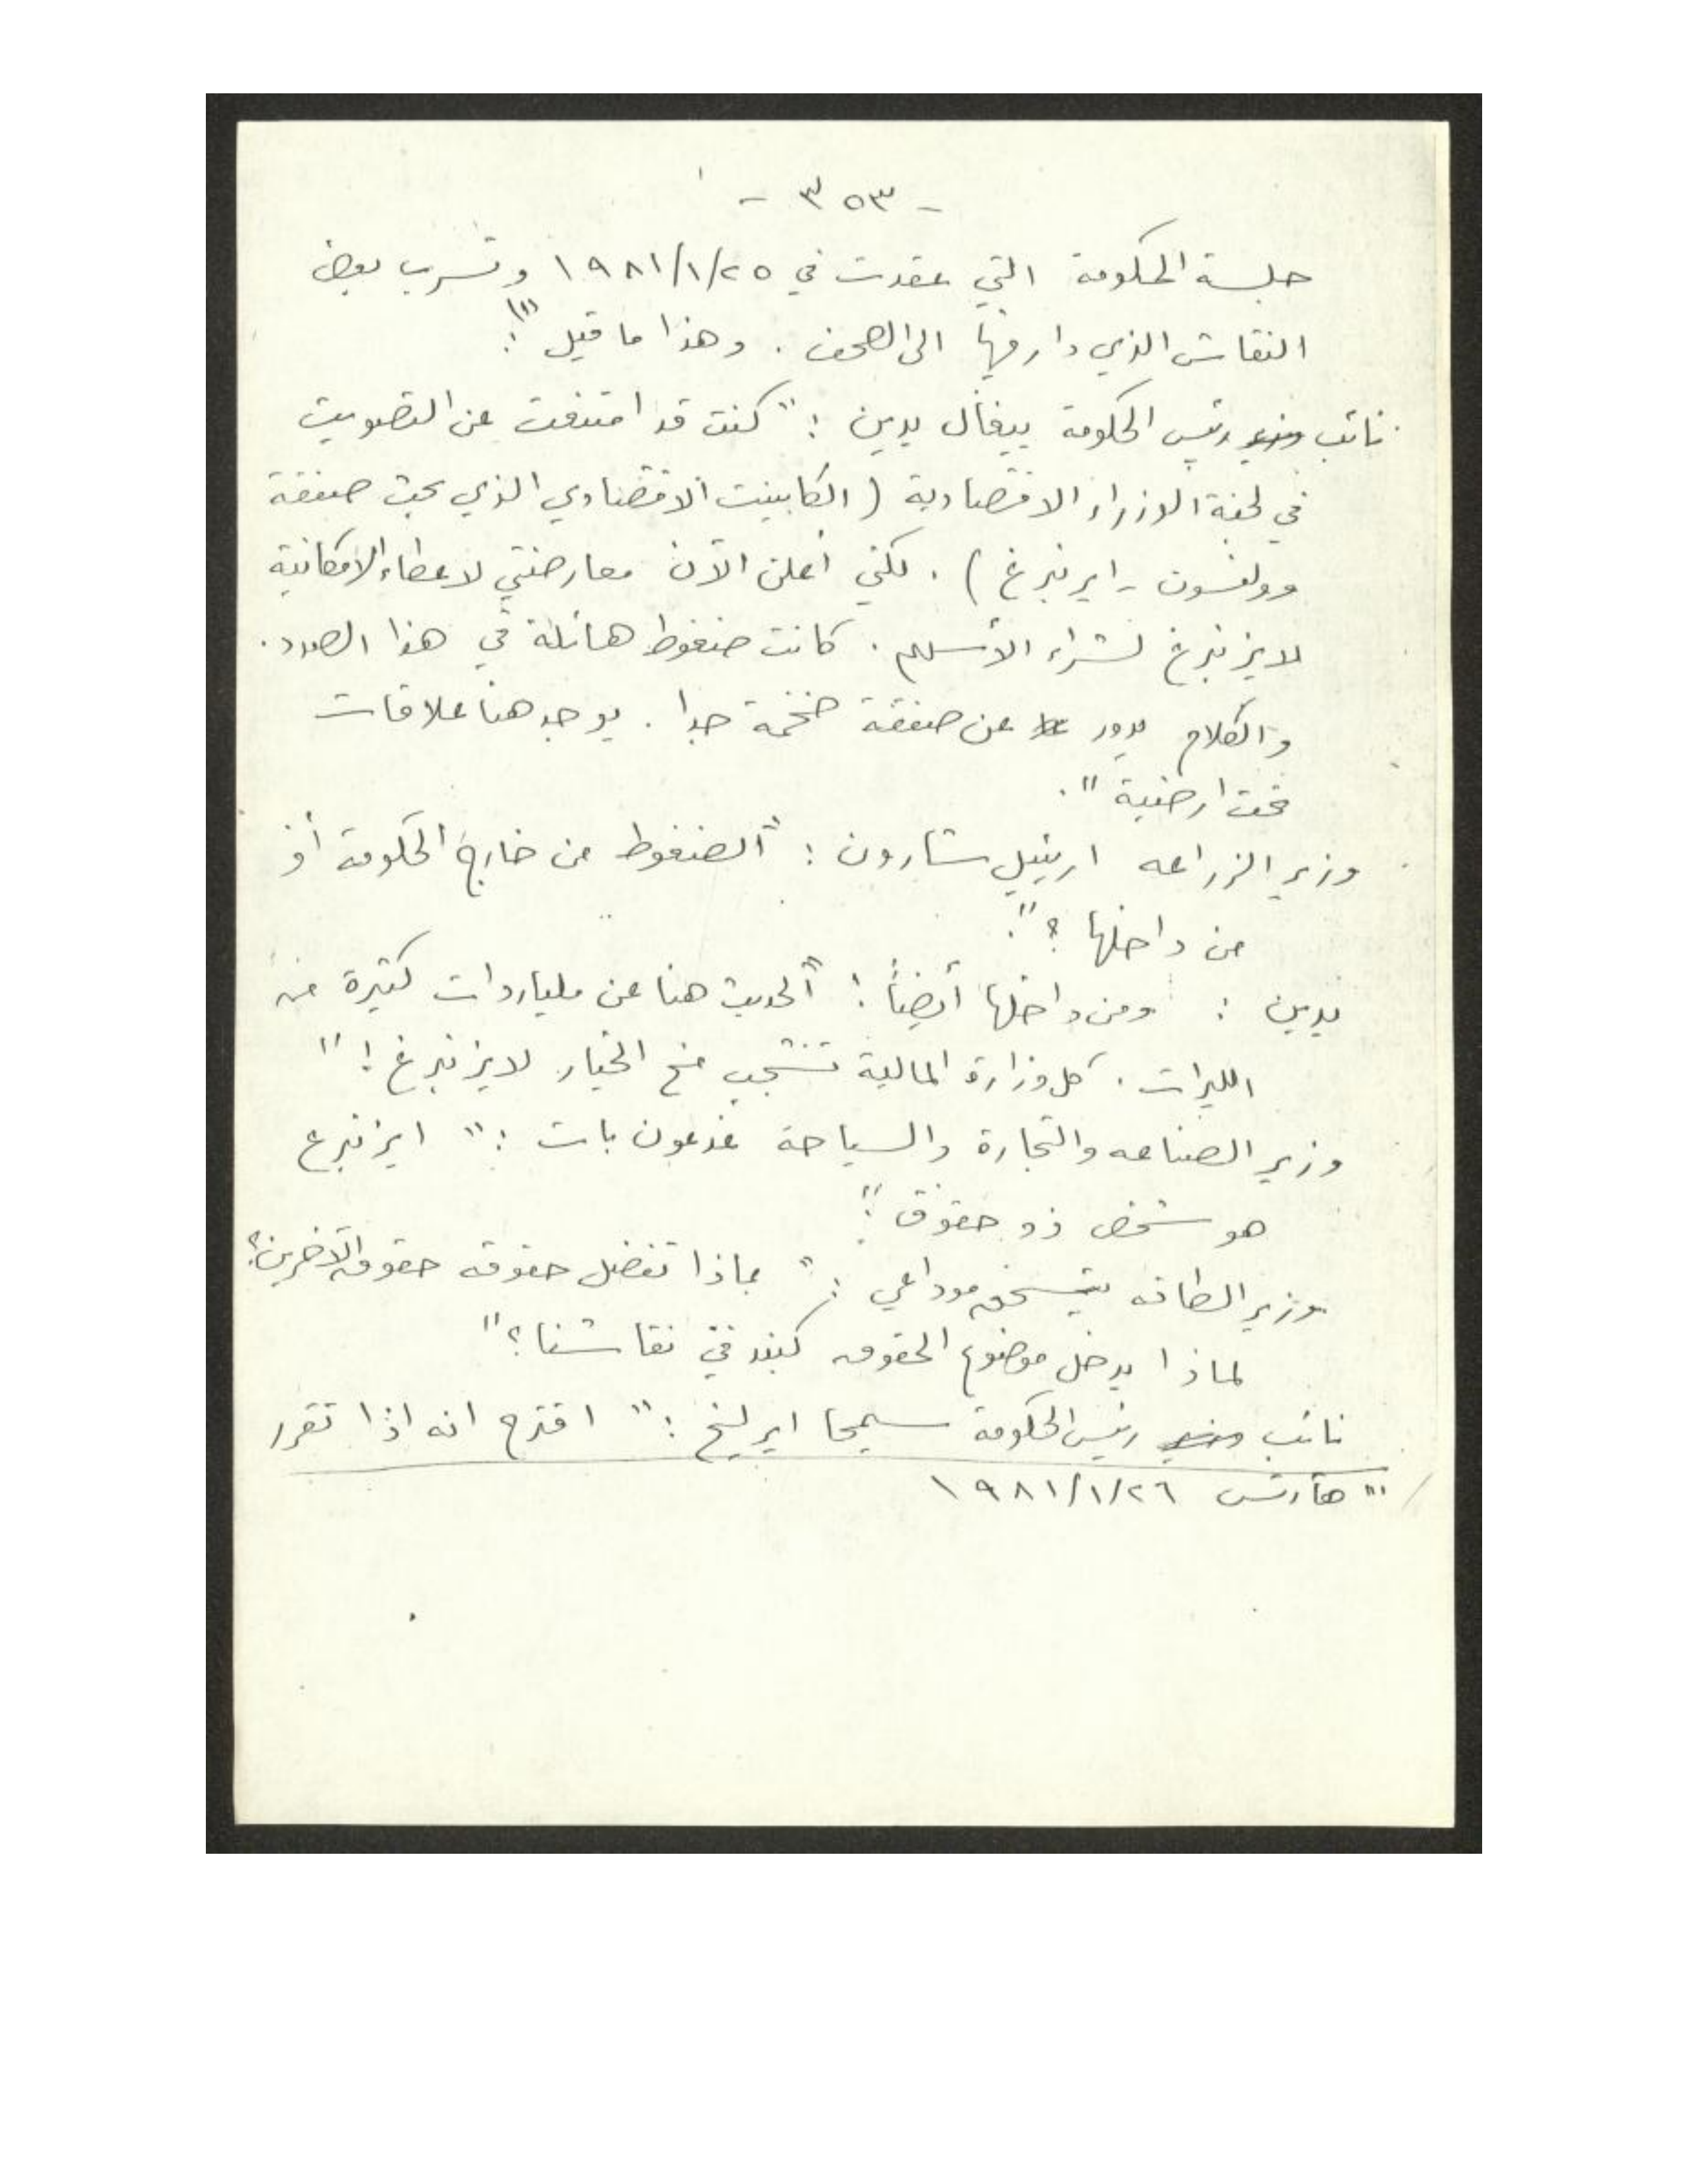 - ٣٥٣ -
جلسة الحكومة التي عقدت في ١٩٨١/١/٢٥ وتسرب بعض
النقاش الذي دار فيها الى الصحف . وهذا ما قيل (١):
نائب رئيس الحكومة ييغال يدين : "كنت قد امتنعت عن التصويت
في لجنة الوزراء الاقتصادية (الكابينت الاقتصادي الذي بحث صفقة
وولفسون - ايزنبرغ ) . لكني أعلن الآن معارضتي لاعطاء الامكانية
لايزنبرغ لشراء الأسهم . كانت ضغوط هائلة في هذا الصدد .
والكلام يدور عن صفقة ضخمة جدا . يوجد هنا علاقات
تحت ارضية " .
وزير الزراعه اريئيل شارون : "الضغوط من خارج الحكومة أو
من داخلها ؟ " .
يدين : ومن داخلها أيضاً ! "الحديث هنا عن مليارات كثيرة من
الليرات . كل وزارة المالية تشجب منح الخيار لايزنبرغ ! "
وزير الصناعه والتجارة والسياحة غدعون بات : " ايزنبرغ
هو شخص ذو حقوق "!
وزير الطاقه يتسحق موداعي : " بماذا تفضل حقوقه حقوق الآخرين ؟
لماذا يدخل موضوع الحقوق كبند في نقاشنا ؟ "
نائب رئيس الحكومة سيمحا ايرليخ : " اقترح انه اذا تقرر
(١) هآرتس ١٩٨١/١/٢٦